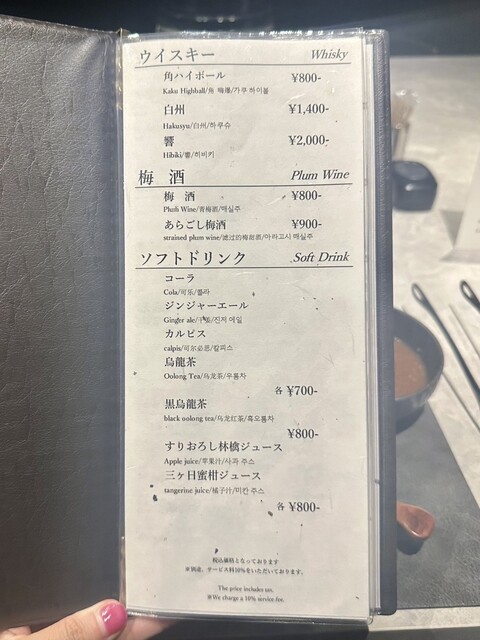 ウイスキー Whisky
角ハイボール ¥800-
Kaku Highball/角 嗨棒/가쿠 하이볼
白州 ¥1,400-
Hakusyu/白州/하쿠슈
響 ¥2,000-
Hibiki/響/히비키
梅 酒 Plum Wine
梅 酒 ¥800-
Plum Wine/青梅酒/매실주
あらごし梅酒 ¥900-
strained plum wine/滤过的梅甜酒/아라고시 매실주
ソフトドリンク Soft Drink
コーラ
Cola/可乐/콜라
ジンジャーエール
Ginger ale/干姜/진저 에일
カルピス
calpis/可尔必思/칼피스
烏龍茶
Oolong Tea/乌龙茶/우롱차
各 ¥700-
黒烏龍茶
black oolong tea/乌龙红茶/흑오룡차
¥800-
すりおろし林檎ジュース
Apple juice/苹果汁/사과 주스
三ヶ日蜜柑ジュース
tangerine juice/橘子汁/미칸 주스
各 ¥800-
税込価格となっております
※別途、サービス料10%をいただいております。
The price includes tax.
※We charge a 10% service fee.